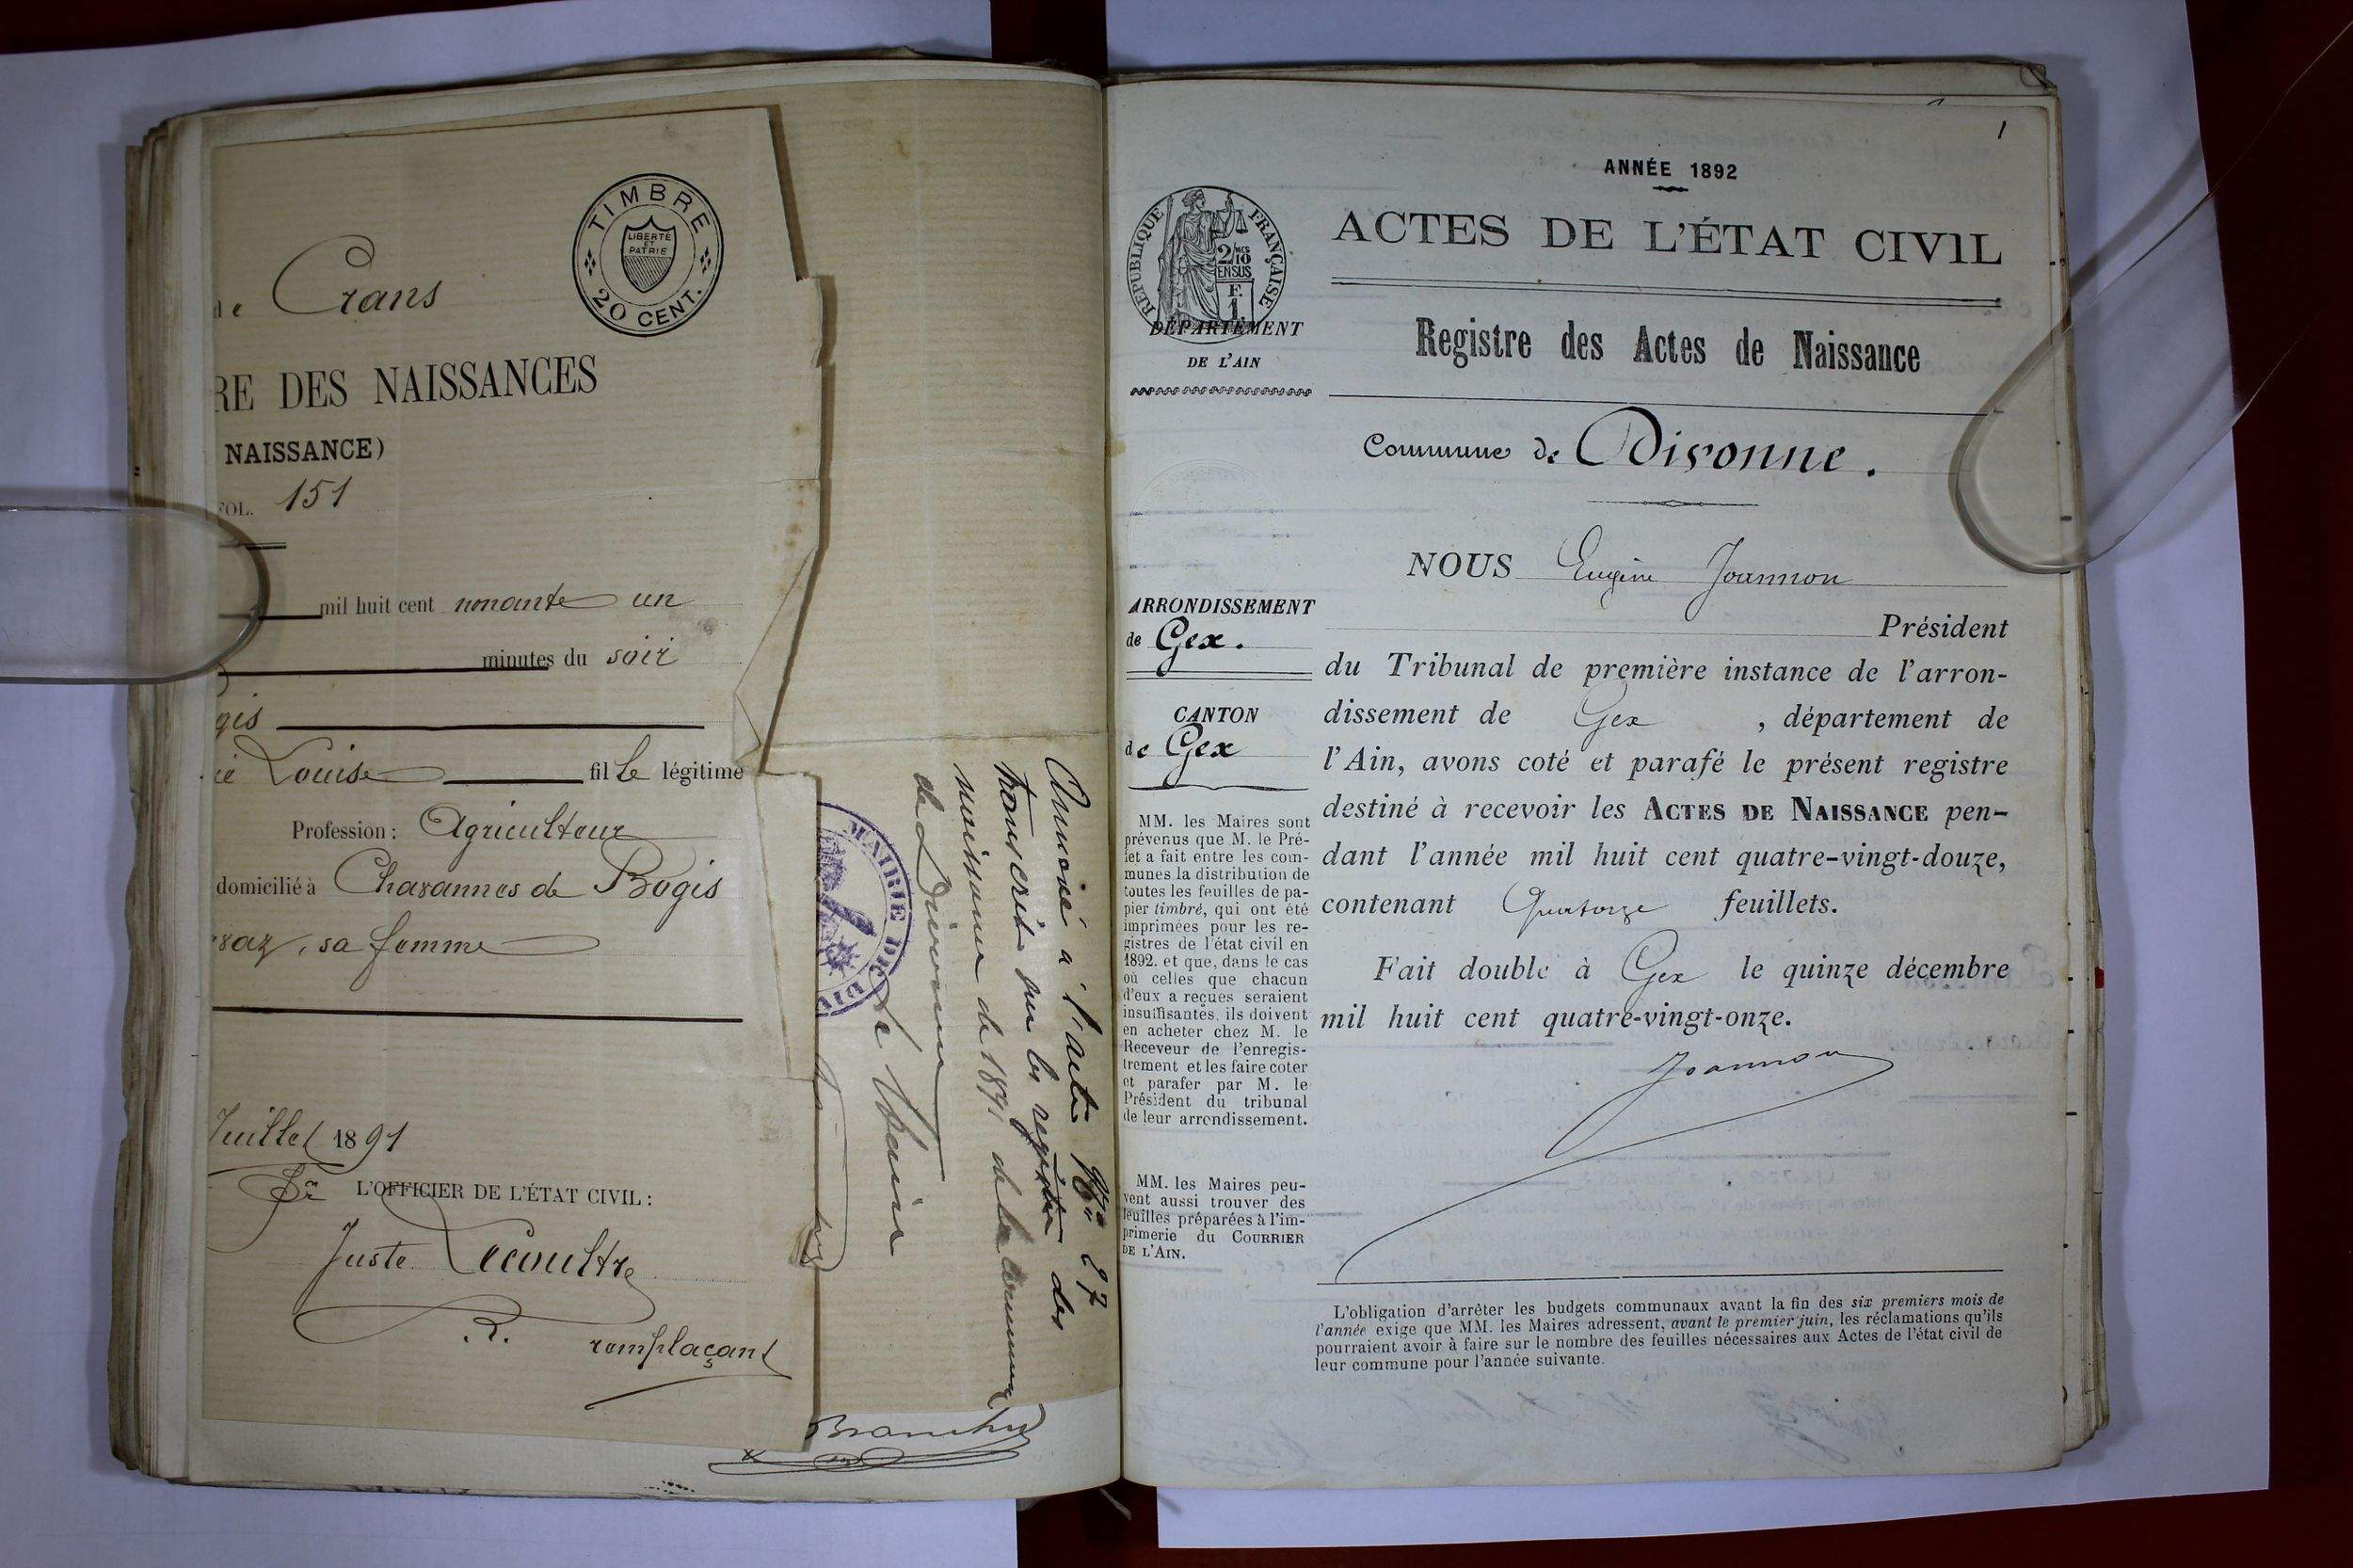 de Crans
TIMBRE
LIBERTÉ
ET
PATRIE
20 CENT.
RE DES NAISSANCES
NAISSANCE)
FOL. 151
mil huit cent nonante un
minutes du soir
gis
Louise fil le légitime
Profession : Agriculteur
domicilié à Chavannes de Bogis
sa femme
Juillet 1891
L'OFFICIER DE L'ÉTAT CIVIL :
Juste Lecoultre
remplaçant
Annexé à l'acte No 27
transcrit sur les registres des
naissances de 1891 de la commune
de Divonne
Le Maire
MAIRIE DE
1
ANNÉE 1892
RÉPUBLIQUE FRANÇAISE
2/10
EN SUS
F.
1.
ACTES DE L'ÉTAT CIVIL
DÉPARTEMENT
DE L'AIN
Registre des Actes de Naissance
Commune de Divonne.
NOUS Eugène Joannon
Président
du Tribunal de première instance de l'arron-
dissement de Gex , département de
l'Ain, avons coté et parafé le présent registre
destiné à recevoir les ACTES DE NAISSANCE pen-
dant l'année mil huit cent quatre-vingt-douze,
contenant Quatorze feuillets.
Fait double à Gex le quinze décembre
mil huit cent quatre-vingt-onze.
Joannon
ARRONDISSEMENT
de Gex.
CANTON
de Gex
MM. les Maires sont
prévenus que M. le Pré-
fet a fait entre les com-
munes la distribution de
toutes les feuilles de pa-
pier timbré, qui ont été
imprimées pour les re-
gistres de l'état civil en
1892. et que, dans le cas
où celles que chacun
d'eux a reçues seraient
insuffisantes, ils doivent
en acheter chez M. le
Receveur de l'enregis-
trement et les faire coter
et parafer par M. le
Président du tribunal
de leur arrondissement.
MM. les Maires peu-
vent aussi trouver des
feuilles préparées à l'im-
primerie du COURRIER
DE L'AIN.
L'obligation d'arrêter les budgets communaux avant la fin des six premiers mois de
l'année exige que MM. les Maires adressent, avant le premier juin, les réclamations qu'ils
pourraient avoir à faire sur le nombre des feuilles nécessaires aux Actes de l'état civil de
leur commune pour l'année suivante.